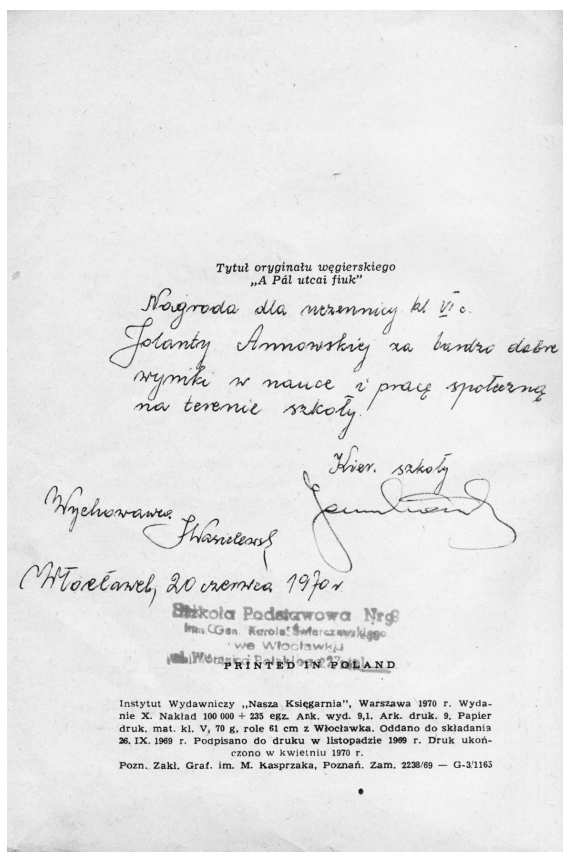 Tytuł oryginału węgierskiego
„A Pál utcai fiuk”
Nagroda dla uczennicy kl VI c.
Jolanty Annowskiej za bardzo dobre
wyniki w nauce i pracę społeczną
na terenie szkoły.
Kier. szkoły
Wychowawca
JWasilewsk
Włocławek, 20 czerwca 1970 r.
Szkoła Podstawowa Nr 8
im. Gen. Karola Świerczewskiego
we Włocławku
ul. Wojska Polskiego
PRINTED IN POLAND
Instytut Wydawniczy „Nasza Księgarnia”, Warszawa 1970 r. Wyda-
nie X. Nakład 100 000 + 235 egz. Ark. wyd. 9,1. Ark. druk. 9. Papier
druk. mat. kl. V, 70 g, role 61 cm z Włocławka. Oddano do składania
26. IX. 1969 r. Podpisano do druku w listopadzie 1969 r. Druk ukoń-
czono w kwietniu 1970 r.
Pozn. Zakł. Graf. im. M. Kasprzaka, Poznań. Zam. 2238/69 — G-3/1165